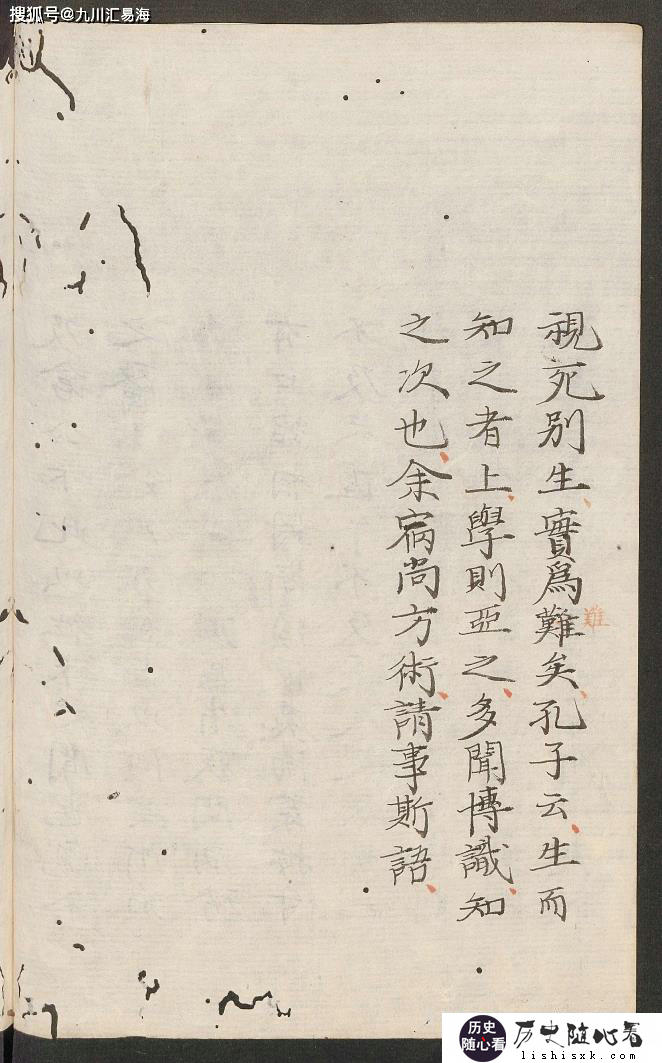 搜狐号@九川汇易海
視死別生實爲難矣孔子云生而
難
知之者上學則亞之多聞博識知
之次也余宿尚方術請事斯語
历史随心看
历史随心看
lishisxk.com